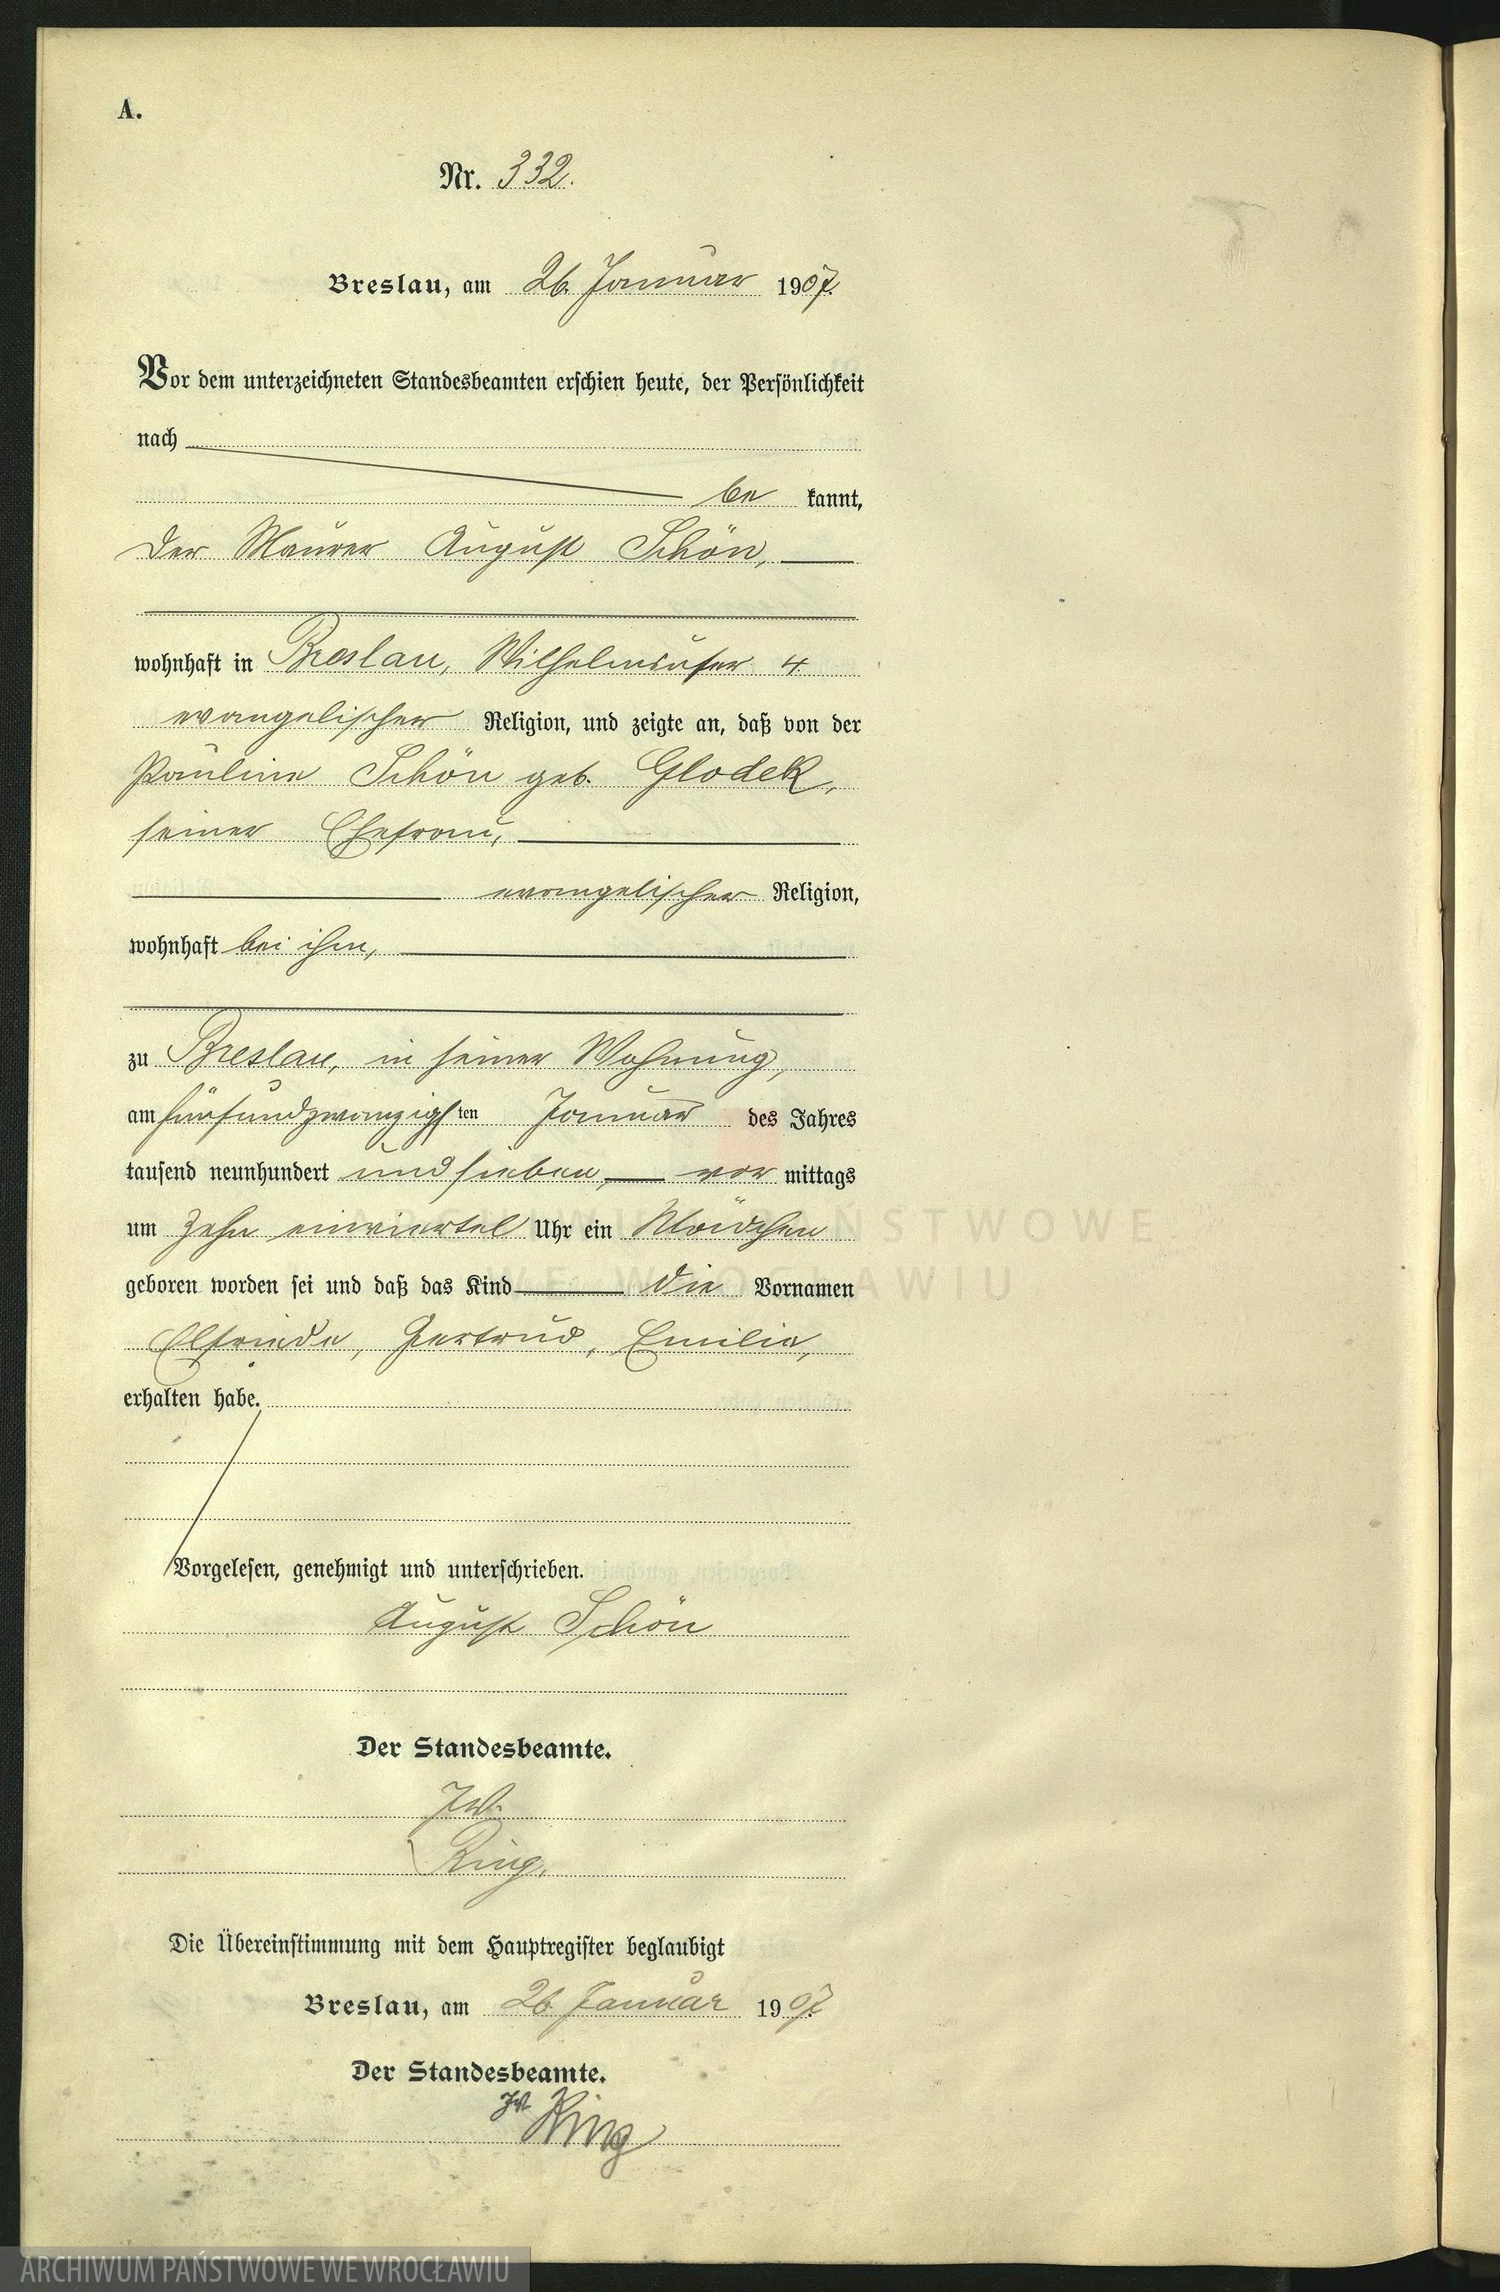 A.
Nr. 332.
Breslau, am 26. Januar 1907.
Vor dem unterzeichneten Standesbeamten erschien heute, der Persönlichkeit
nach
be kannt,
der Maurer August Schön,
wohnhaft in Breslau, Wilhelmsufer 4.
evangelischer Religion, und zeigte an, daß von der
Pauline Schön geb. Glodek,
seiner Ehefrau,
evangelischer Religion,
wohnhaft bei ihm,
zu Breslau, in seiner Wohnung,
am fünfundzwanzigsten Januar des Jahres
tausend neunhundert und sieben, vor mittags
um zehn einviertel Uhr ein Mädchen
geboren worden sei und daß das Kind die Vornamen
Elfriede, Gertrud, Emilie,
erhalten habe.
Vorgelesen, genehmigt und unterschrieben.
August Schön
Der Standesbeamte.
J.V.
Ring.
Die Übereinstimmung mit dem Hauptregister beglaubigt
Breslau, am 26. Januar 1907.
Der Standesbeamte.
J.V. Ring
ARCHIWUM PAŃSTWOWE
WE WROCŁAWIU
ARCHIWUM PAŃSTWOWE WE WROCŁAWIU